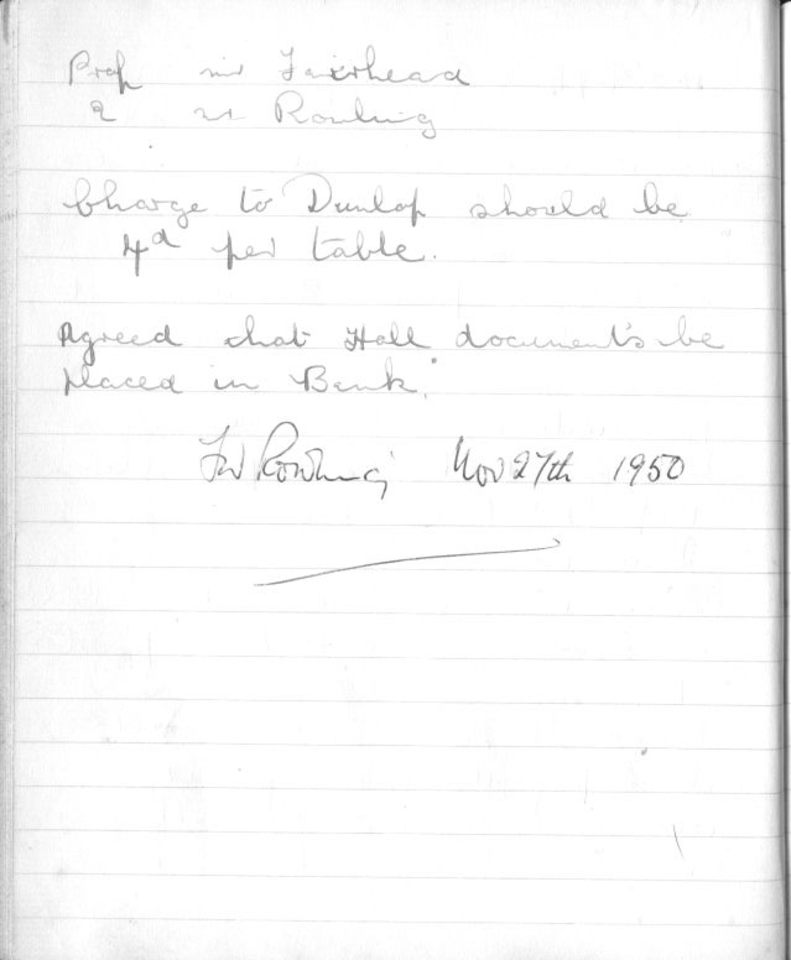 Prop Mr Fairhead
2 Mr Rowling
Charge to Dunlop should be
4d per table.
Agreed that Hall documents be
placed in Bank.
FW Rowling Nov 27th 1950